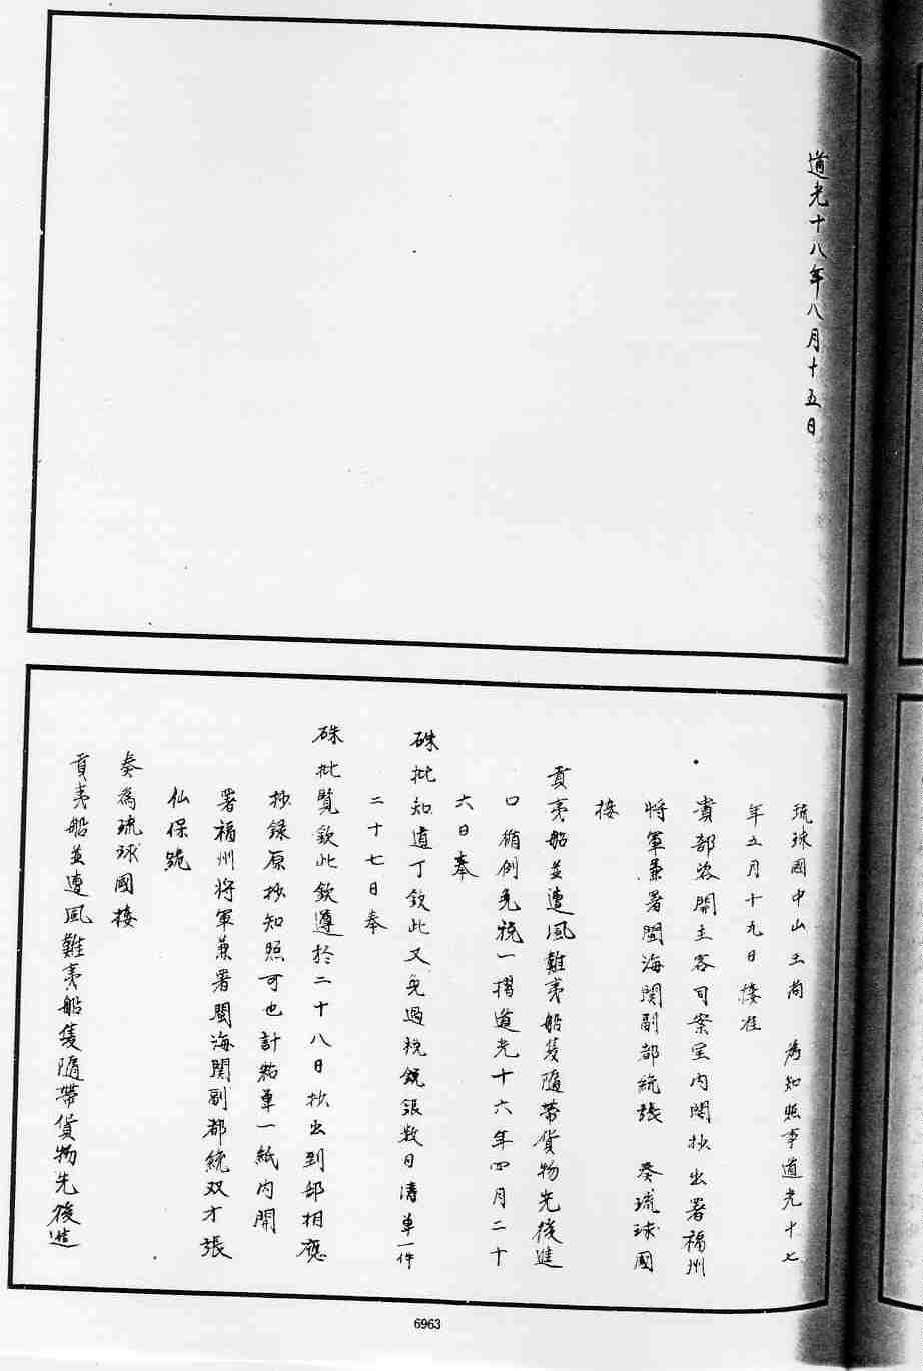 道光十八年八月十五日
琉球國中山王尚　為知照事道光十七
年五月十九日接准
貴部咨開主客司案呈內閣抄出署福州
將軍兼署閩海関副都統張　奏琉球國
接
貢夷船並遭風難夷船隻隨帶貨物先後進
口循例免稅一摺道光十六年四月二十
六日奉
硃批知道了欽此又免過稅銀張数目清單一件
二十七日奉
硃批覽欽此欽遵於二十八日抄出到部相應
抄錄原抄知照可也計粘單一紙內開
署福州將軍兼署閩海関副都統双才張
仙保跪
奏為琉球國接
貢夷船並遭風難夷船隻隨帶貨物先後進
6963